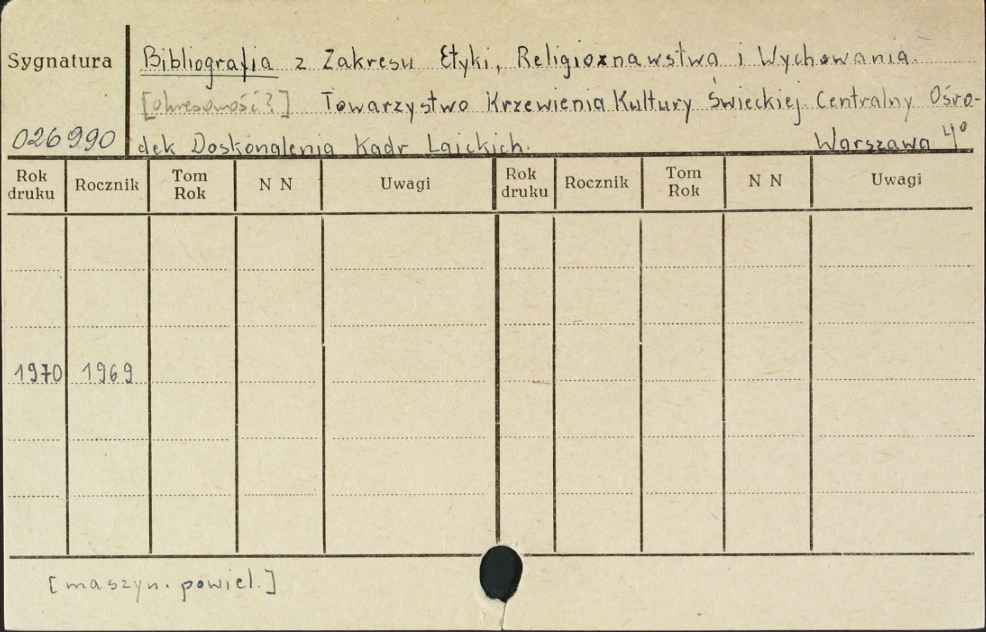 Sygnatura
Bibliografia z Zakresu Etyki, Religioznawstwa i Wychowania.
[okresowość?] Towarzystwo Krzewienia Kultury Świeckiej. Centralny Ośro-
026990 dek Doskonalenia Kadr Laickich. Warszawa 4°
Rok druku Rocznik Tom Rok N N Uwagi Rok druku Rocznik Tom Rok N N Uwagi
1970 1969
[maszyn. powiel.]